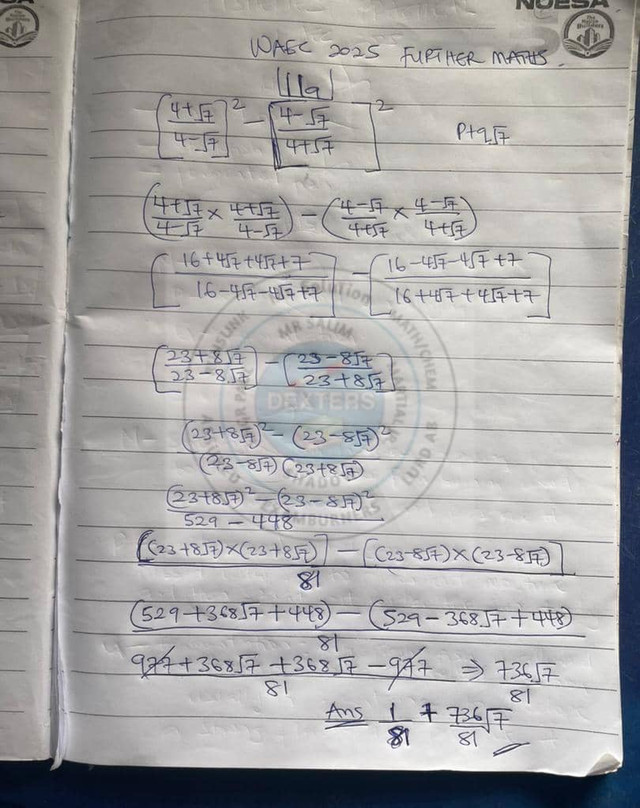 NUESA
WAEC 2025 FURTHER MATHS.
11a
[(4+√7)/(4-√7)]² - [(4-√7)/(4+√7)]²
P+q√7
((4+√7)/(4-√7) × (4+√7)/(4-√7)) - ((4-√7)/(4+√7) × (4-√7)/(4+√7))
[(16+4√7+4√7+7)/(16-4√7-4√7+7)] - [(16-4√7-4√7+7)/(16+4√7+4√7+7)]
[(23+8√7)/(23-8√7)] - [(23-8√7)/(23+8√7)]
MR SALIM
MATH/CHEM
DEXTERS
(23+8√7)² - (23-8√7)²
(23-8√7)(23+8√7)
(23+8√7)² - (23-8√7)²
529 - 448
[(23+8√7)×(23+8√7)] - [(23-8√7)×(23-8√7)]
81
(529+368√7+448) - (529-368√7+448)
81
977+368√7+368√7-977 ⇒ 736√7
81 81
Ans 1/81 + 736/81 √7